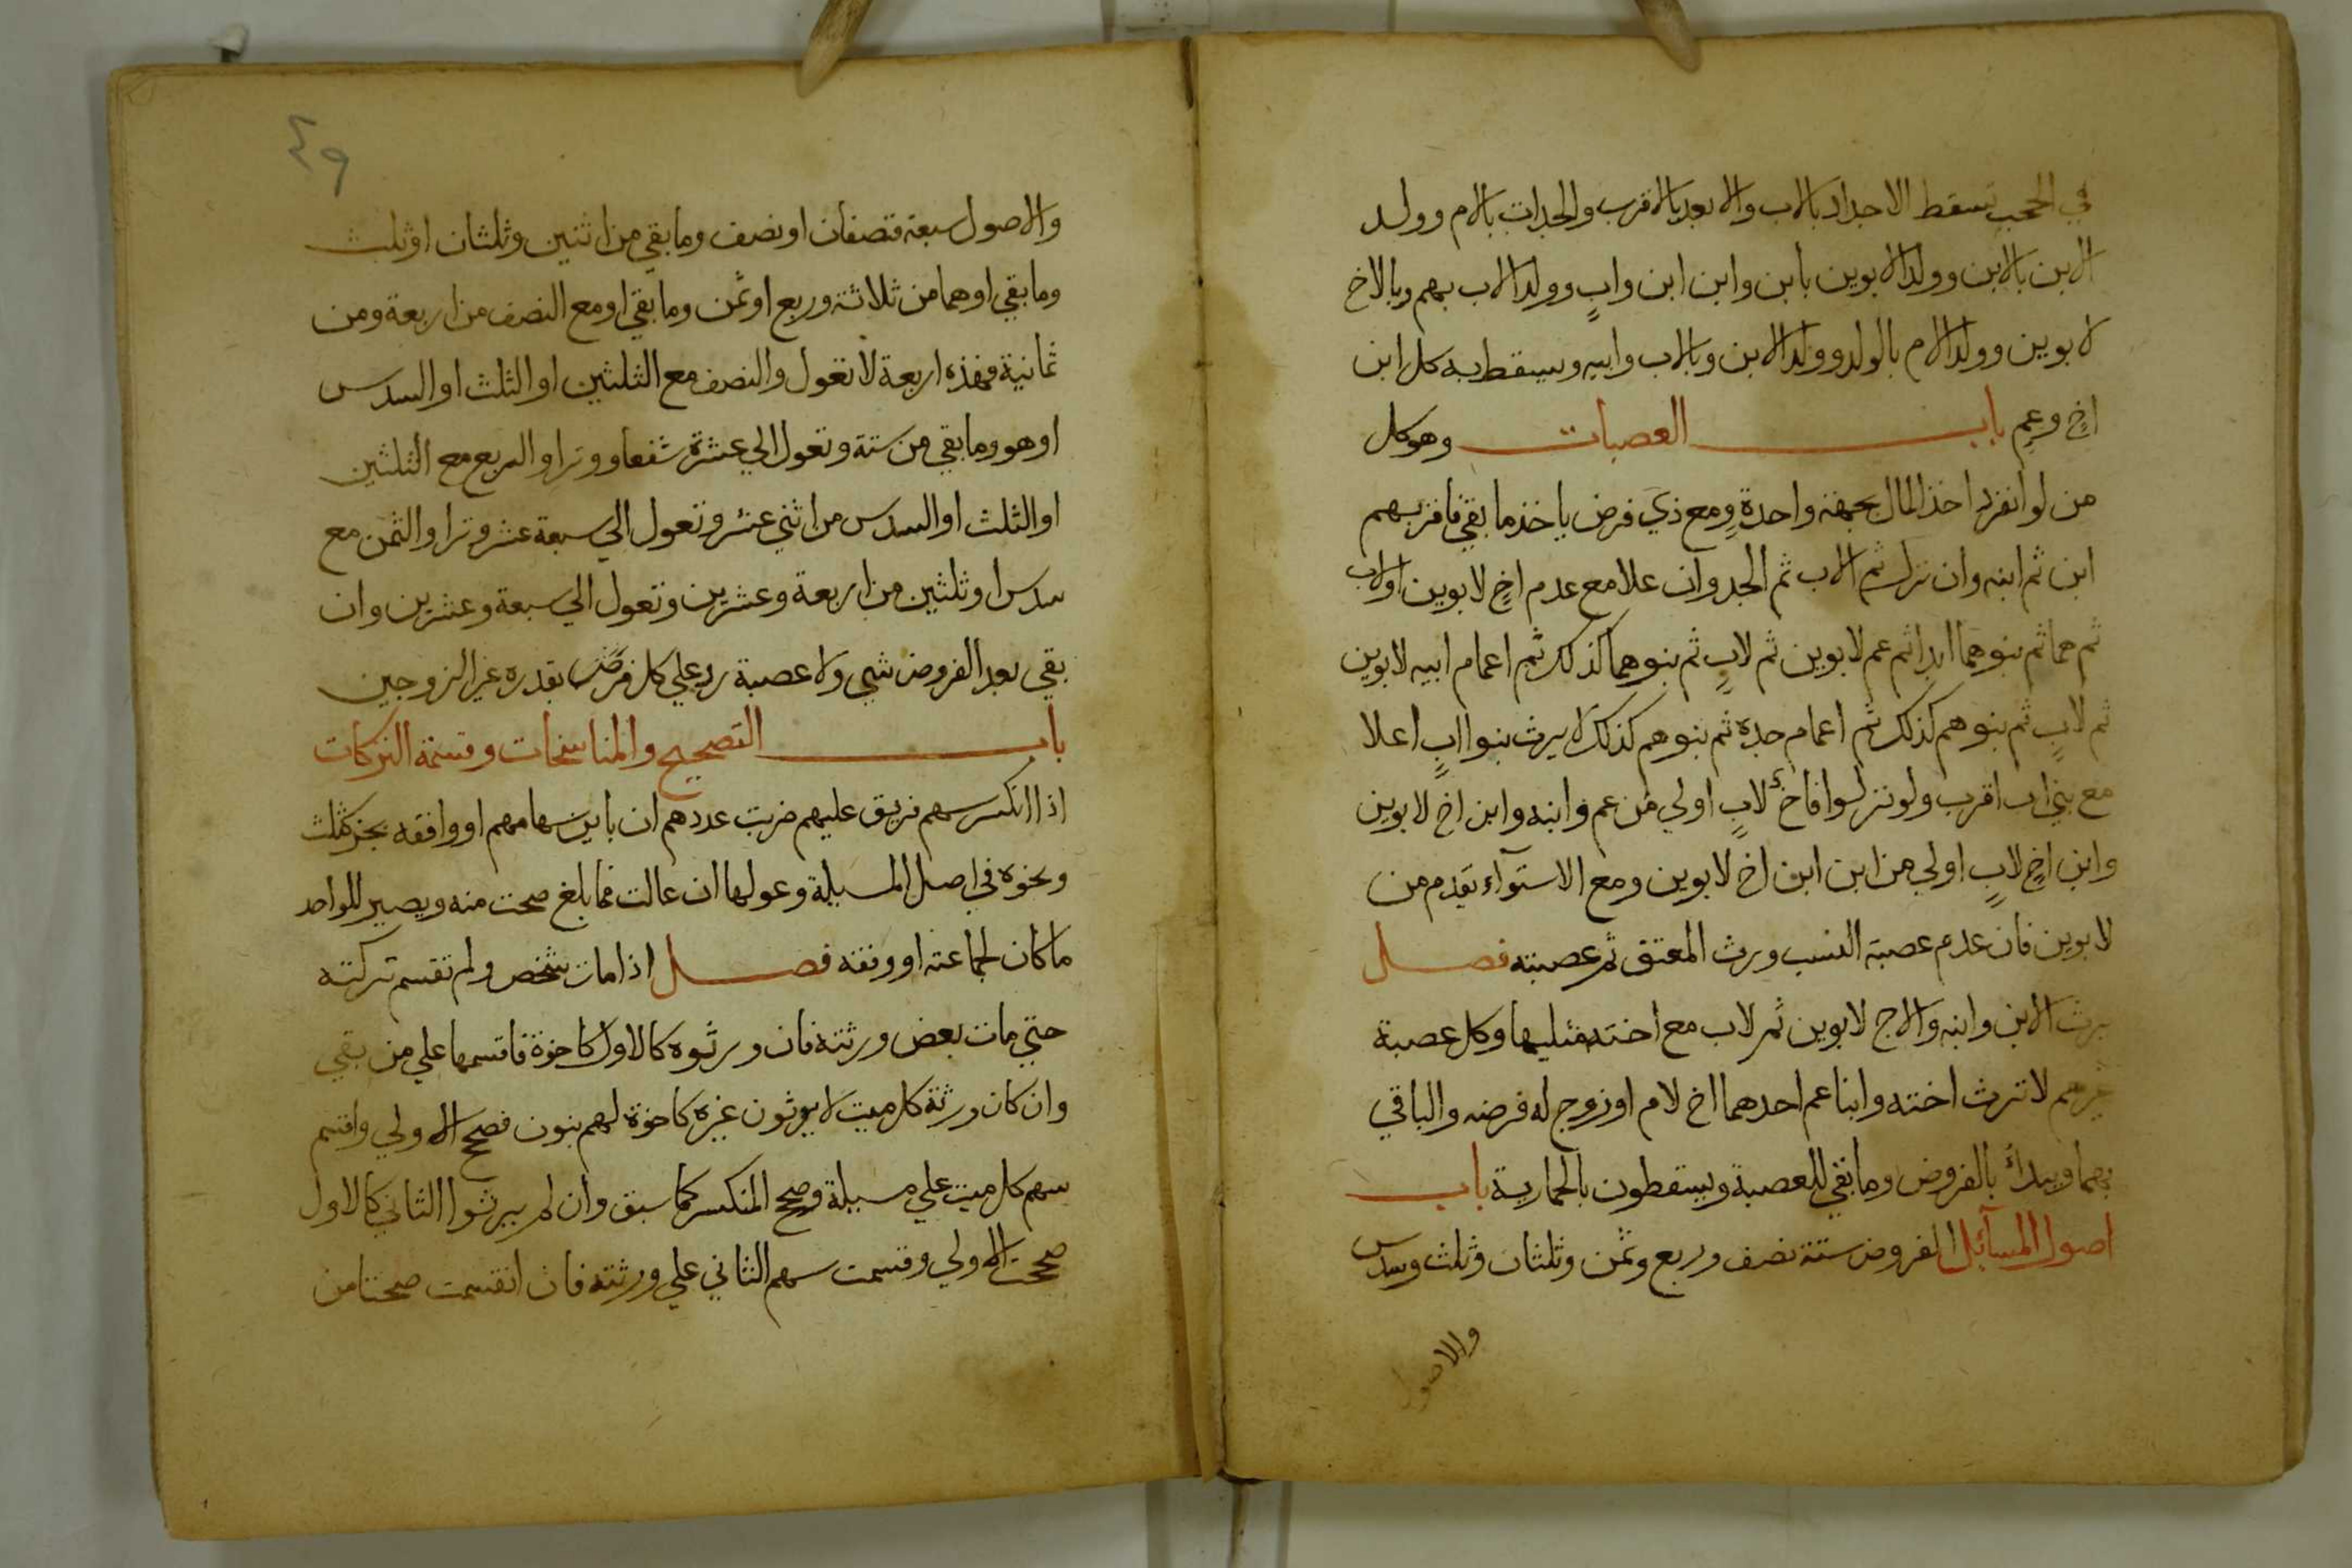 في الحجب تسقط الاجداد بالاب والابعد بالاقرب والجدات بالام وولد
الابن بالابن وولد الابوين بابن وابن ابن وابٍ وولد الاب بهم وبالاخ
لابوين وولد الام بالولد وولد الابن وبالاب وابيه ويسقط به كل ابن
اخٍ وعمٍ باب العصبات وهو كل
من لو انفرد اخذ المال بجهة واحدةٍ ومع ذي فرض ياخذ ما بقي فاقربهم
ابن ثم ابنه وان نزل ثم الاب ثم الجد وان علا مع عدم اخٍ لابوين اولاب
ثم هما ثم بنوهما ابدا ثم عم لابوين ثم لابٍ ثم بنوهما كذلك ثم اعمام ابيه لابوين
ثم لابٍ ثم بنوهم كذلك ثم اعمام جده ثم بنوهم كذلك لا يرث بنوا ابٍ اعلا
مع بني اب اقرب ولو نزلوا فاخ لابٍ اولي من عم وابنه وابن اخ لابوين
وابن اخٍ لابٍ اولي من ابن ابن اخ لابوين ومع الاستوآء يقدم من
لابوين فان عدم عصبة النسب ورث المعتق ثم عصبته فصل
يرث الابن وابنه والاخ لابوين ثم لاب مع اخته مثليها وكل عصبة
غيرهم لا ترث اخته وابنا عم احدهما اخ لام او زوج له فرضه والباقي
بهما ويبدأ بالفروض وما بقي للعصبة ويسقطون بالحمارية باب
اصول المسآئل الفروض ستة نصف وربع وثمن وثلثان وثلث وسدس
والاصول
٤٩
والاصول سبعة فنصفان او نصف وما بقي من اثنين وثلثان او ثلث
وما بقي او هما من ثلاثة وربع او ثمن وما بقي او مع النصف من اربعة ومن
ثمانية فهذه اربعة لا تعول والنصف مع الثلثين او الثلث او السدس
او هو وما بقي من ستة وتعول الي عشرة شفعا ووترا والربع مع الثلثين
او الثلث او السدس من اثني عشر وتعول الي سبعة عشر وترا والثمن مع
سدس او ثلثين من اربعة وعشرين وتعول الي سبعة وعشرين وان
بقي بعد الفروض شي ولا عصبة رد علي كل فرض بقدره غير الزوجين
باب التصحيح والمناسخات وقسمة التركات
اذا انكسر سهم فريق عليهم ضربت عددهم ان باين سهامهم او وافقه بجزء كثلث
ونحوه في اصل المسيلة وعولها ان عالت فما بلغ صحت منه ويصير للواحد
ما كان لجماعته او وفقه فصل اذا مات شخص ولم تقسم تركته
حتي مات بعض ورثته فان ورثوه كالاول كاخوة فاقسمها علي من بقي
وان كان ورثة كل ميت لا يرثون غيره كاخوة لهم بنون فصحح الاولي واقسم
سهم كل ميت علي مسيلة وصحح المنكسر كما سبق وان لم يرثوا الثاني كالاول
صححت الاولي وقسمت سهم الثاني علي ورثته فان انقسمت صحتا من